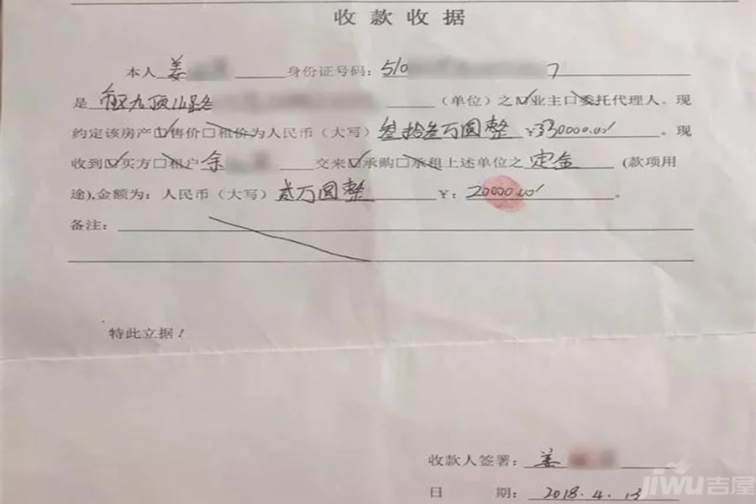 收款收据
本人姜 身份证号码:510 7
是 九顶山路 (单位)之☑业主☐委托代理人。现
约定该房产☑售价☐租价为人民币(大写)叁拾叁万圆整 ¥330000.00 。现
收到☑买方☐租户余 交来☑承购☐承租上述单位之 定金 (款项用
途),金额为:人民币(大写)贰万圆整 ¥:20000.00 。
备注:
特此立据!
收款人签署:姜
日 期:2018.4.13
JIWU吉屋